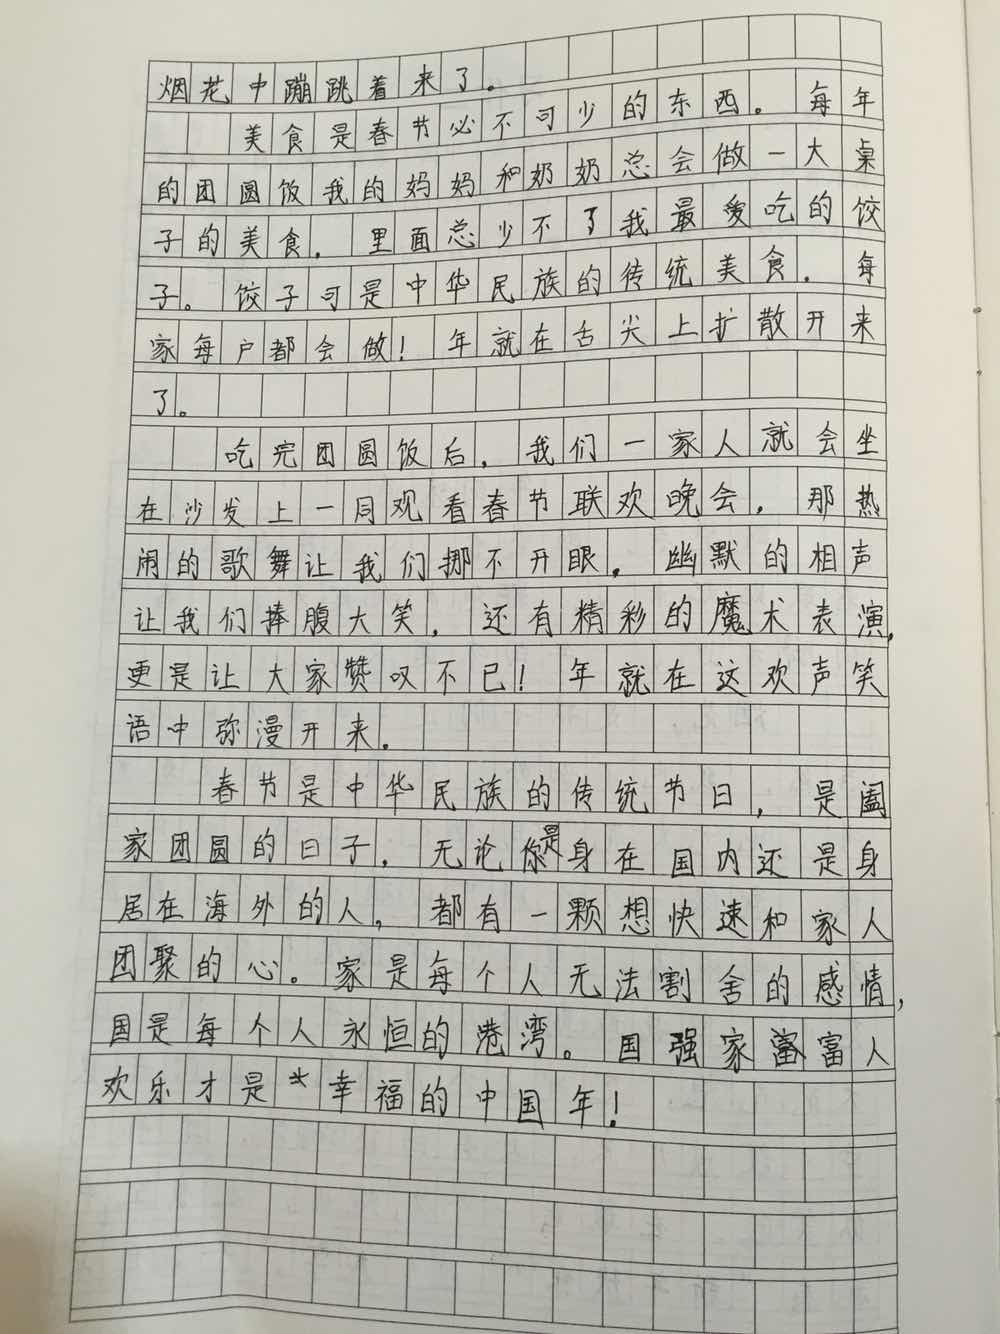 烟花中蹦跳着来了。
美食是春节必不可少的东西。每年
的团圆饭我的妈妈和奶奶总会做一大桌
子的美食，里面总少不了我最爱吃的饺
子。饺子可是中华民族的传统美食，每
家每户都会做！年就在舌尖上扩散开来
了。
吃完团圆饭后，我们一家人就会坐
在沙发上一同观看春节联欢晚会，那热
闹的歌舞让我们挪不开眼，幽默的相声
让我们捧腹大笑，还有精彩的魔术表演，
更是让大家赞叹不已！年就在这欢声笑
语中弥漫开来。
春节是中华民族的传统节日，是阖
家团圆的日子，无论你是身在国内还是身
居在海外的人，都有一颗想快速和家人
团聚的心。家是每个人无法割舍的感情，
国是每个人永恒的港湾。国强家富人
欢乐才是幸福的中国年！